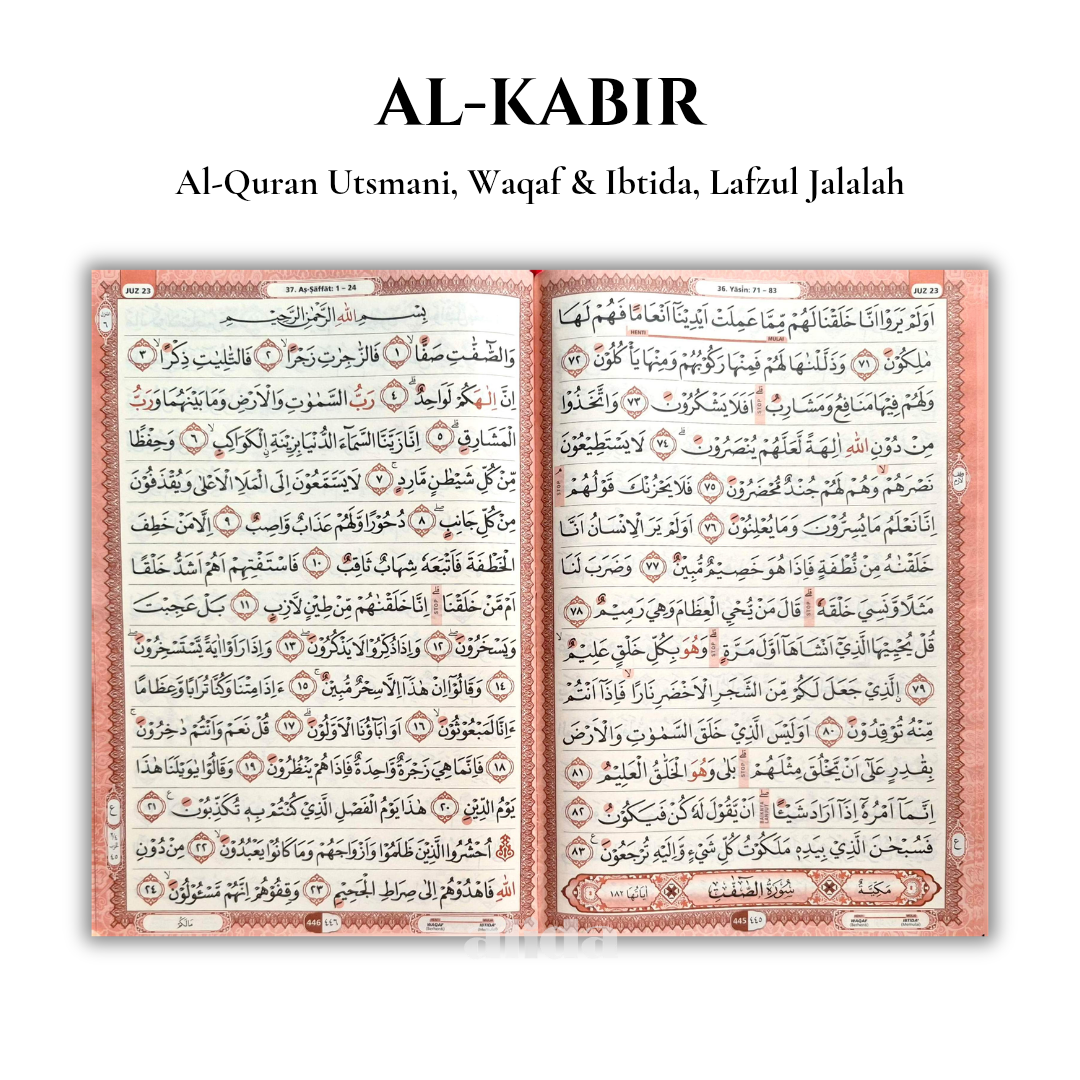 AL-KABIR
Al-Quran Utsmani, Waqaf & Ibtida, Lafzul Jalalah
36. Yāsīn: 71 – 83
JUZ 23
اَوَلَمْ يَرَوْا اَنَّا خَلَقْنَا لَهُمْ مِّمَّا عَمِلَتْ اَيْدِيْنَآ اَنْعَامًا فَهُمْ لَهَا
HENTI MULAI
مٰلِكُوْنَ ٧١ وَذَلَّلْنٰهَا لَهُمْ فَمِنْهَا رَكُوْبُهُمْ وَمِنْهَا يَأْكُلُوْنَ ٧٢
وَلَهُمْ فِيْهَا مَنَافِعُ وَمَشَارِبُۗ STOP اَفَلَا يَشْكُرُوْنَ ٧٣ وَاتَّخَذُوْا
مِنْ دُوْنِ اللّٰهِ اٰلِهَةً لَّعَلَّهُمْ يُنْصَرُوْنَۗ ٧٤ لَا يَسْتَطِيْعُوْنَ
نَصْرَهُمْۙ وَهُمْ لَهُمْ جُنْدٌ مُّحْضَرُوْنَ ٧٥ فَلَا يَحْزُنْكَ قَوْلُهُمْۘ STOP
اِنَّا نَعْلَمُ مَا يُسِرُّوْنَ وَمَا يُعْلِنُوْنَ ٧٦ اَوَلَمْ يَرَ الْاِنْسَانُ اَنَّا
خَلَقْنٰهُ مِنْ نُّطْفَةٍ فَاِذَا هُوَ خَصِيْمٌ مُّبِيْنٌ ٧٧ وَضَرَبَ لَنَا
مَثَلًا وَّنَسِيَ خَلْقَهٗۗ STOP قَالَ مَنْ يُّحْيِ الْعِظَامَ وَهِيَ رَمِيْمٌ ٧٨
قُلْ يُحْيِيْهَا الَّذِيْٓ اَنْشَاَهَآ اَوَّلَ مَرَّةٍۗ STOP وَهُوَ بِكُلِّ خَلْقٍ عَلِيْمٌۙ
٧٩ ۨالَّذِيْ جَعَلَ لَكُمْ مِّنَ الشَّجَرِ الْاَخْضَرِ نَارًاۙ فَاِذَآ اَنْتُمْ
مِّنْهُ تُوْقِدُوْنَ ٨٠ اَوَلَيْسَ الَّذِيْ خَلَقَ السَّمٰوٰتِ وَالْاَرْضَ
بِقٰدِرٍ عَلٰٓى اَنْ يَّخْلُقَ مِثْلَهُمْۗ STOP بَلٰى وَهُوَ الْخَلّٰقُ الْعَلِيْمُ ٨١
اِنَّمَآ اَمْرُهٗٓ اِذَآ اَرَادَ شَيْـًٔاۖ اَنْ يَّقُوْلَ لَهٗ كُنْ فَيَكُوْنُ ٨٢
فَسُبْحٰنَ الَّذِيْ بِيَدِهٖ مَلَكُوْتُ كُلِّ شَيْءٍ وَّاِلَيْهِ تُرْجَعُوْنَ ࣖ ٨٣
مَكِّيَّةٌ سُوْرَةُ الصّٰۤفّٰتِ اٰيَاتُهَا ١٨٢
445 ٤٤٥ WAQAF (Berhenti) IBTIDA' (Memulai)
JUZ 23
37. Aṣ-Ṣāffāt: 1 – 24
بِسْمِ اللّٰهِ الرَّحْمٰنِ الرَّحِيْمِ
وَالصّٰۤفّٰتِ صَفًّاۙ ١ فَالزّٰجِرٰتِ زَجْرًاۙ ٢ فَالتّٰلِيٰتِ ذِكْرًاۙ ٣
اِنَّ اِلٰهَكُمْ لَوَاحِدٌۗ ٤ رَبُّ السَّمٰوٰتِ وَالْاَرْضِ وَمَا بَيْنَهُمَا وَرَبُّ
الْمَشَارِقِۗ ٥ اِنَّا زَيَّنَّا السَّمَاۤءَ الدُّنْيَا بِزِيْنَةِ ۨالْكَوَاكِبِۙ ٦ وَحِفْظًا
مِّنْ كُلِّ شَيْطٰنٍ مَّارِدٍۚ ٧ لَا يَسَّمَّعُوْنَ اِلَى الْمَلَاِ الْاَعْلٰى وَيُقْذَفُوْنَ
مِنْ كُلِّ جَانِبٍۖ ٨ دُحُوْرًا وَّلَهُمْ عَذَابٌ وَّاصِبٌ ٩ اِلَّا مَنْ خَطِفَ
الْخَطْفَةَ فَاَتْبَعَهٗ شِهَابٌ ثَاقِبٌ ١٠ فَاسْتَفْتِهِمْ اَهُمْ اَشَدُّ خَلْقًا
اَمْ مَّنْ خَلَقْنَاۗ STOP اِنَّا خَلَقْنٰهُمْ مِّنْ طِيْنٍ لَّازِبٍ ١١ بَلْ عَجِبْتَ
وَيَسْخَرُوْنَۖ ١٢ وَاِذَا ذُكِّرُوْا لَا يَذْكُرُوْنَۖ ١٣ وَاِذَا رَاَوْا اٰيَةً يَّسْتَسْخِرُوْنَۖ
١٤ وَقَالُوْٓا اِنْ هٰذَآ اِلَّا سِحْرٌ مُّبِيْنٌۚ ١٥ ءَاِذَا مِتْنَا وَكُنَّا تُرَابًا وَّعِظَامًا
ءَاِنَّا لَمَبْعُوْثُوْنَۙ ١٦ اَوَاٰبَاۤؤُنَا الْاَوَّلُوْنَۗ ١٧ قُلْ نَعَمْ وَاَنْتُمْ دٰخِرُوْنَۚ
١٨ فَاِنَّمَا هِيَ زَجْرَةٌ وَّاحِدَةٌ فَاِذَا هُمْ يَنْظُرُوْنَ ١٩ وَقَالُوْا يٰوَيْلَنَا هٰذَا
يَوْمُ الدِّيْنِ ٢٠ هٰذَا يَوْمُ الْفَصْلِ الَّذِيْ كُنْتُمْ بِهٖ تُكَذِّبُوْنَ ࣖ ٢١
۞ اُحْشُرُوا الَّذِيْنَ ظَلَمُوْا وَاَزْوَاجَهُمْ وَمَا كَانُوْا يَعْبُدُوْنَۙ ٢٢ مِنْ دُوْنِ
اللّٰهِ فَاهْدُوْهُمْ اِلٰى صِرَاطِ الْجَحِيْمِ ٢٣ وَقِفُوْهُمْ اِنَّهُمْ مَّسْـُٔوْلُوْنَۙ ٢٤
مَالَكُمْ 446 ٤٤٦ WAQAF (Berhenti) IBTIDA'